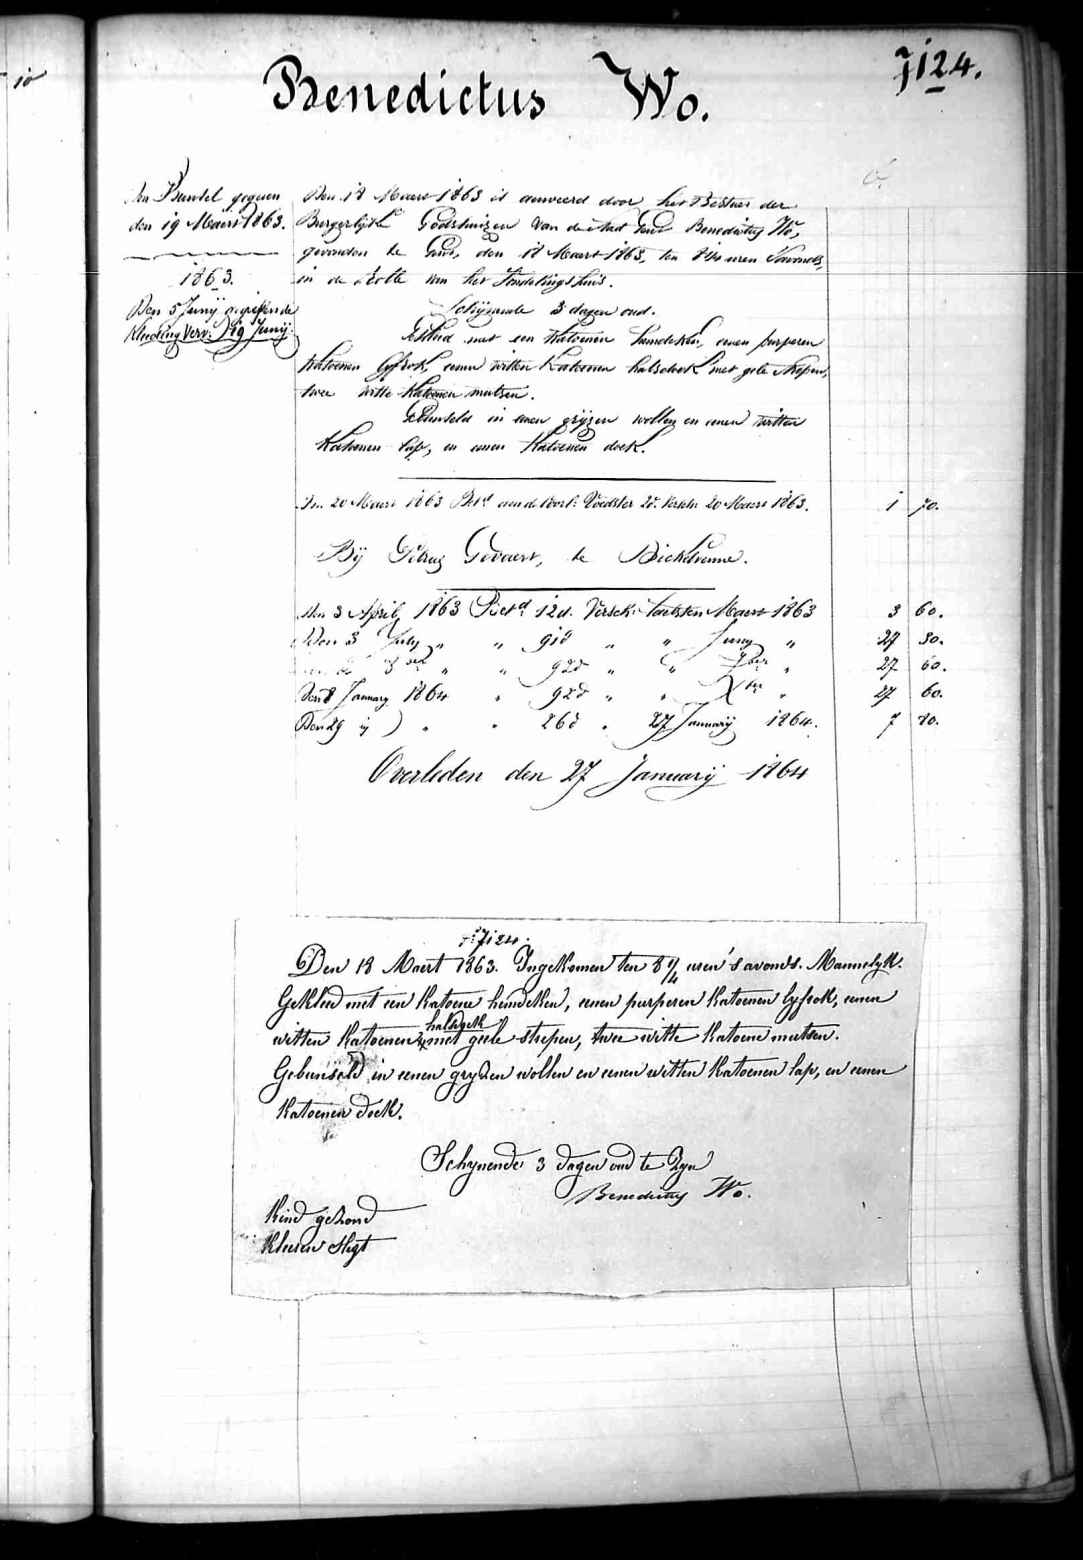 7124.
Benedictus Wo.
Bundel gegeven
den 19 Maert 1863.
1863.
Den 5 Junij
Kleeding Verv. 19 Junij.
Den 18 Maert 1863 is aenveerd door het Bestuer der
Burgerlyke Godshuizen van de stad Gend Benedictus Wo,
gevonden te Gend, den 18 Maert 1863, ten 8 1/4 uren 's avonds,
in de Rolle van het Vondelingshuis.
Schijnende 3 dagen oud.
Gekleed met een Katoenen hemdeken, eenen purperen
Katoenen lyfrok, eenen witten Katoenen halsdoek met gele strepen,
twee witte Katoenen mutsen.
Gebunseld in eenen grijzen wollen en eenen witten
Katoenen lap, en eenen Katoenen doek.
Den 20 Maert 1863 Bet.d aen de Voedster 2d. Versch. 20 Maert 1863. 1 70.
Bij Petrus Govaert, te
Den 3 April 1863 Bet.d 12d. Versch. laetsten Maert 1863 3 60.
Den 3 July " " 91d " " Juny " 27 30.
8ber " " 92d " " 7ber " 27 60.
Den 8 January 1864 " 92d " " Xber " 27 60.
Den 29 ij " " 26d " 27 Januarij 1864. 7 80.
Overleden den 27 Januarij 1864
7124.
Den 18 Maert 1863. Ingekomen ten 8 1/4 uren 's avonds. Mannelyk.
Gekleed met een Katoene hemdeken, eenen purperen Katoenen lyfrok, eenen
witten Katoenen halsdoek met geele strepen, twee witte Katoene mutsen.
Gebunseld in eenen gryzen wollen en eenen witten Katoenen lap, en eenen
Katoenen doek.
Schynende 3 dagen oud te zyn
Benedictus Wo.
Kind gezond
Kleeren slegt